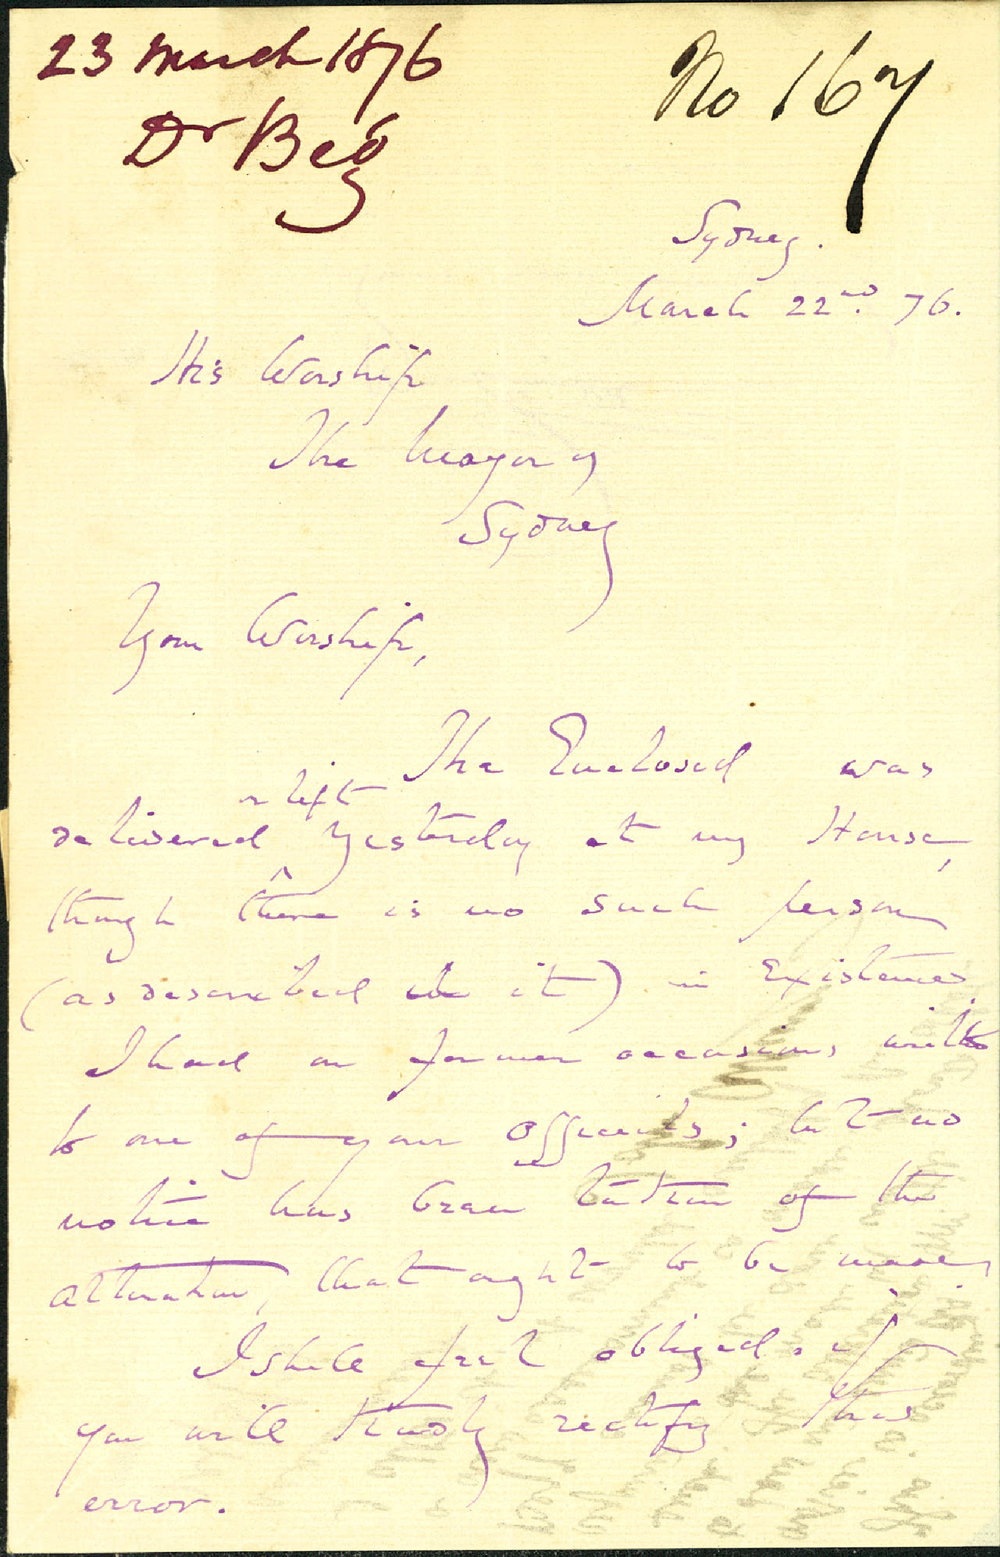 23 March 1876
Dr Beg
No 167
Sydney.
March 22nd. 76.
His Worship
The Mayor of
Sydney
Your Worship,
The Enclosed was
delivered or left yesterday at my House,
though there is no such person
(as described in it) in Existence.
I had on former occasions write
to one of your officials; but no
notice has been taken of the
alteration, that ought to be made.
I shall feel obliged, if
you will kindly rectify this
error.